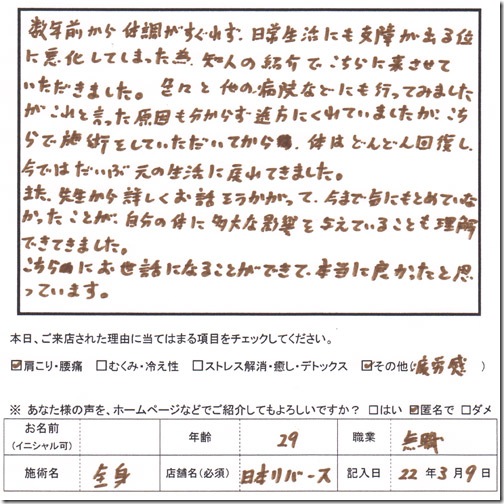 数年前から体調がすぐれず、日常生活にも支障が出る位
に悪化してしまった為、知人の紹介でこちらに来させて
いただきました。色々と他の病院などにも行ってみました
がこれと言った原因も分からず途方にくれていましたが、こち
らで施術をしていただいてから、体はどんどん回復し、
今ではだいぶ元の生活に戻れてきました。
また、先生から詳しくお話をうかがって、今まで気にもとめていな
かったことが、自分の体に多大な影響を与えていることも理解
できてきました。
こちらにお世話になることができて、本当に良かったと思
っています。
本日、ご来店された理由に当てはまる項目をチェックしてください。
☑肩こり・腰痛 □むくみ・冷え性 □ストレス解消・癒し・デトックス ☑その他(疲労感 )
※ あなた様の声を、ホームページなどでご紹介してもよろしいですか? □はい ☑匿名で □ダメ
お名前 (イニシャル可) 年齢 29 職業 無職
施術名 全身 店舗名(必須) 日本リバース 記入日 22年3月9日